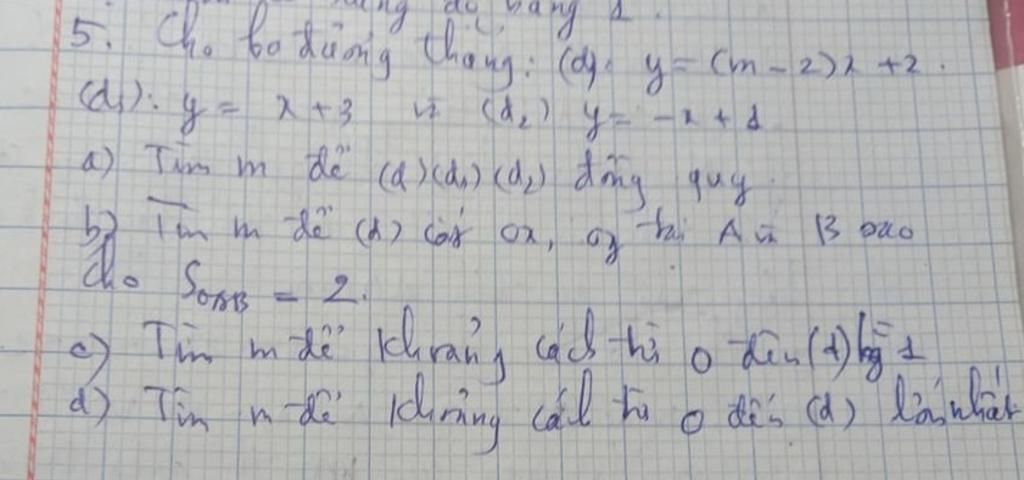 bằng 1.
5. Cho ba đường thẳng: (d): y = (m - 2)x + 2.
(d₁): y = x + 3 và (d₂) y = -x + 1
a) Tìm m để (d) (d₁) (d₂) đồng quy
b) Tìm m để (d) cắt Ox, Oy tại A và B sao
cho SOAB = 2.
c) Tìm m để khoảng cách từ O đến (d) bg 1
d) Tìm m để khoảng cách từ O đến (d) lớn nhất